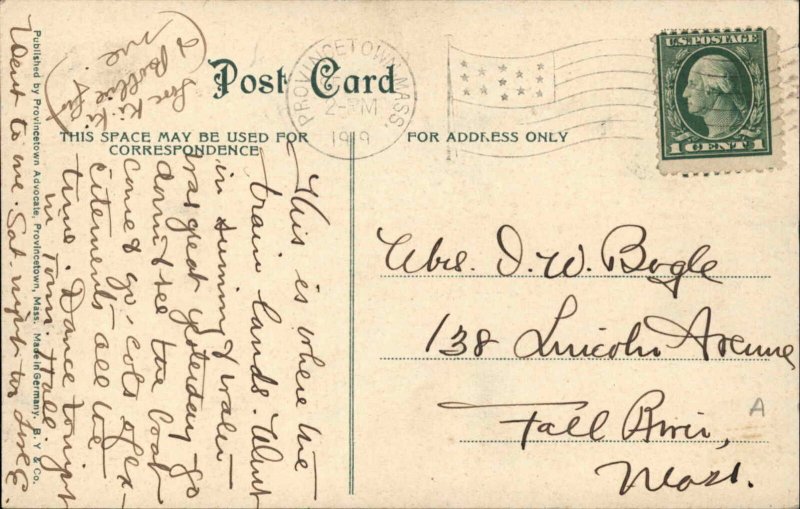 Post Card
THIS SPACE MAY BE USED FOR
CORRESPONDENCE
FOR ADDRESS ONLY
PROVINCETOWN, MASS.
2-PM
1919
U.S. POSTAGE
1 CENT 1
Mrs. I. W. Bogle
138 Lincoln Avenue
Fall River,
Mass.
A
This is where the
train lands. Went
in swimming & water
was great yesterday. Go
down & see the boat
come & go, lots of ex-
citements all the
time. Dance tonight
in Town Hall.
Went to me. Sat. night
me.
Published by Provincetown Advocate, Provincetown, Mass. Made in Germany. B. Y. & Co.